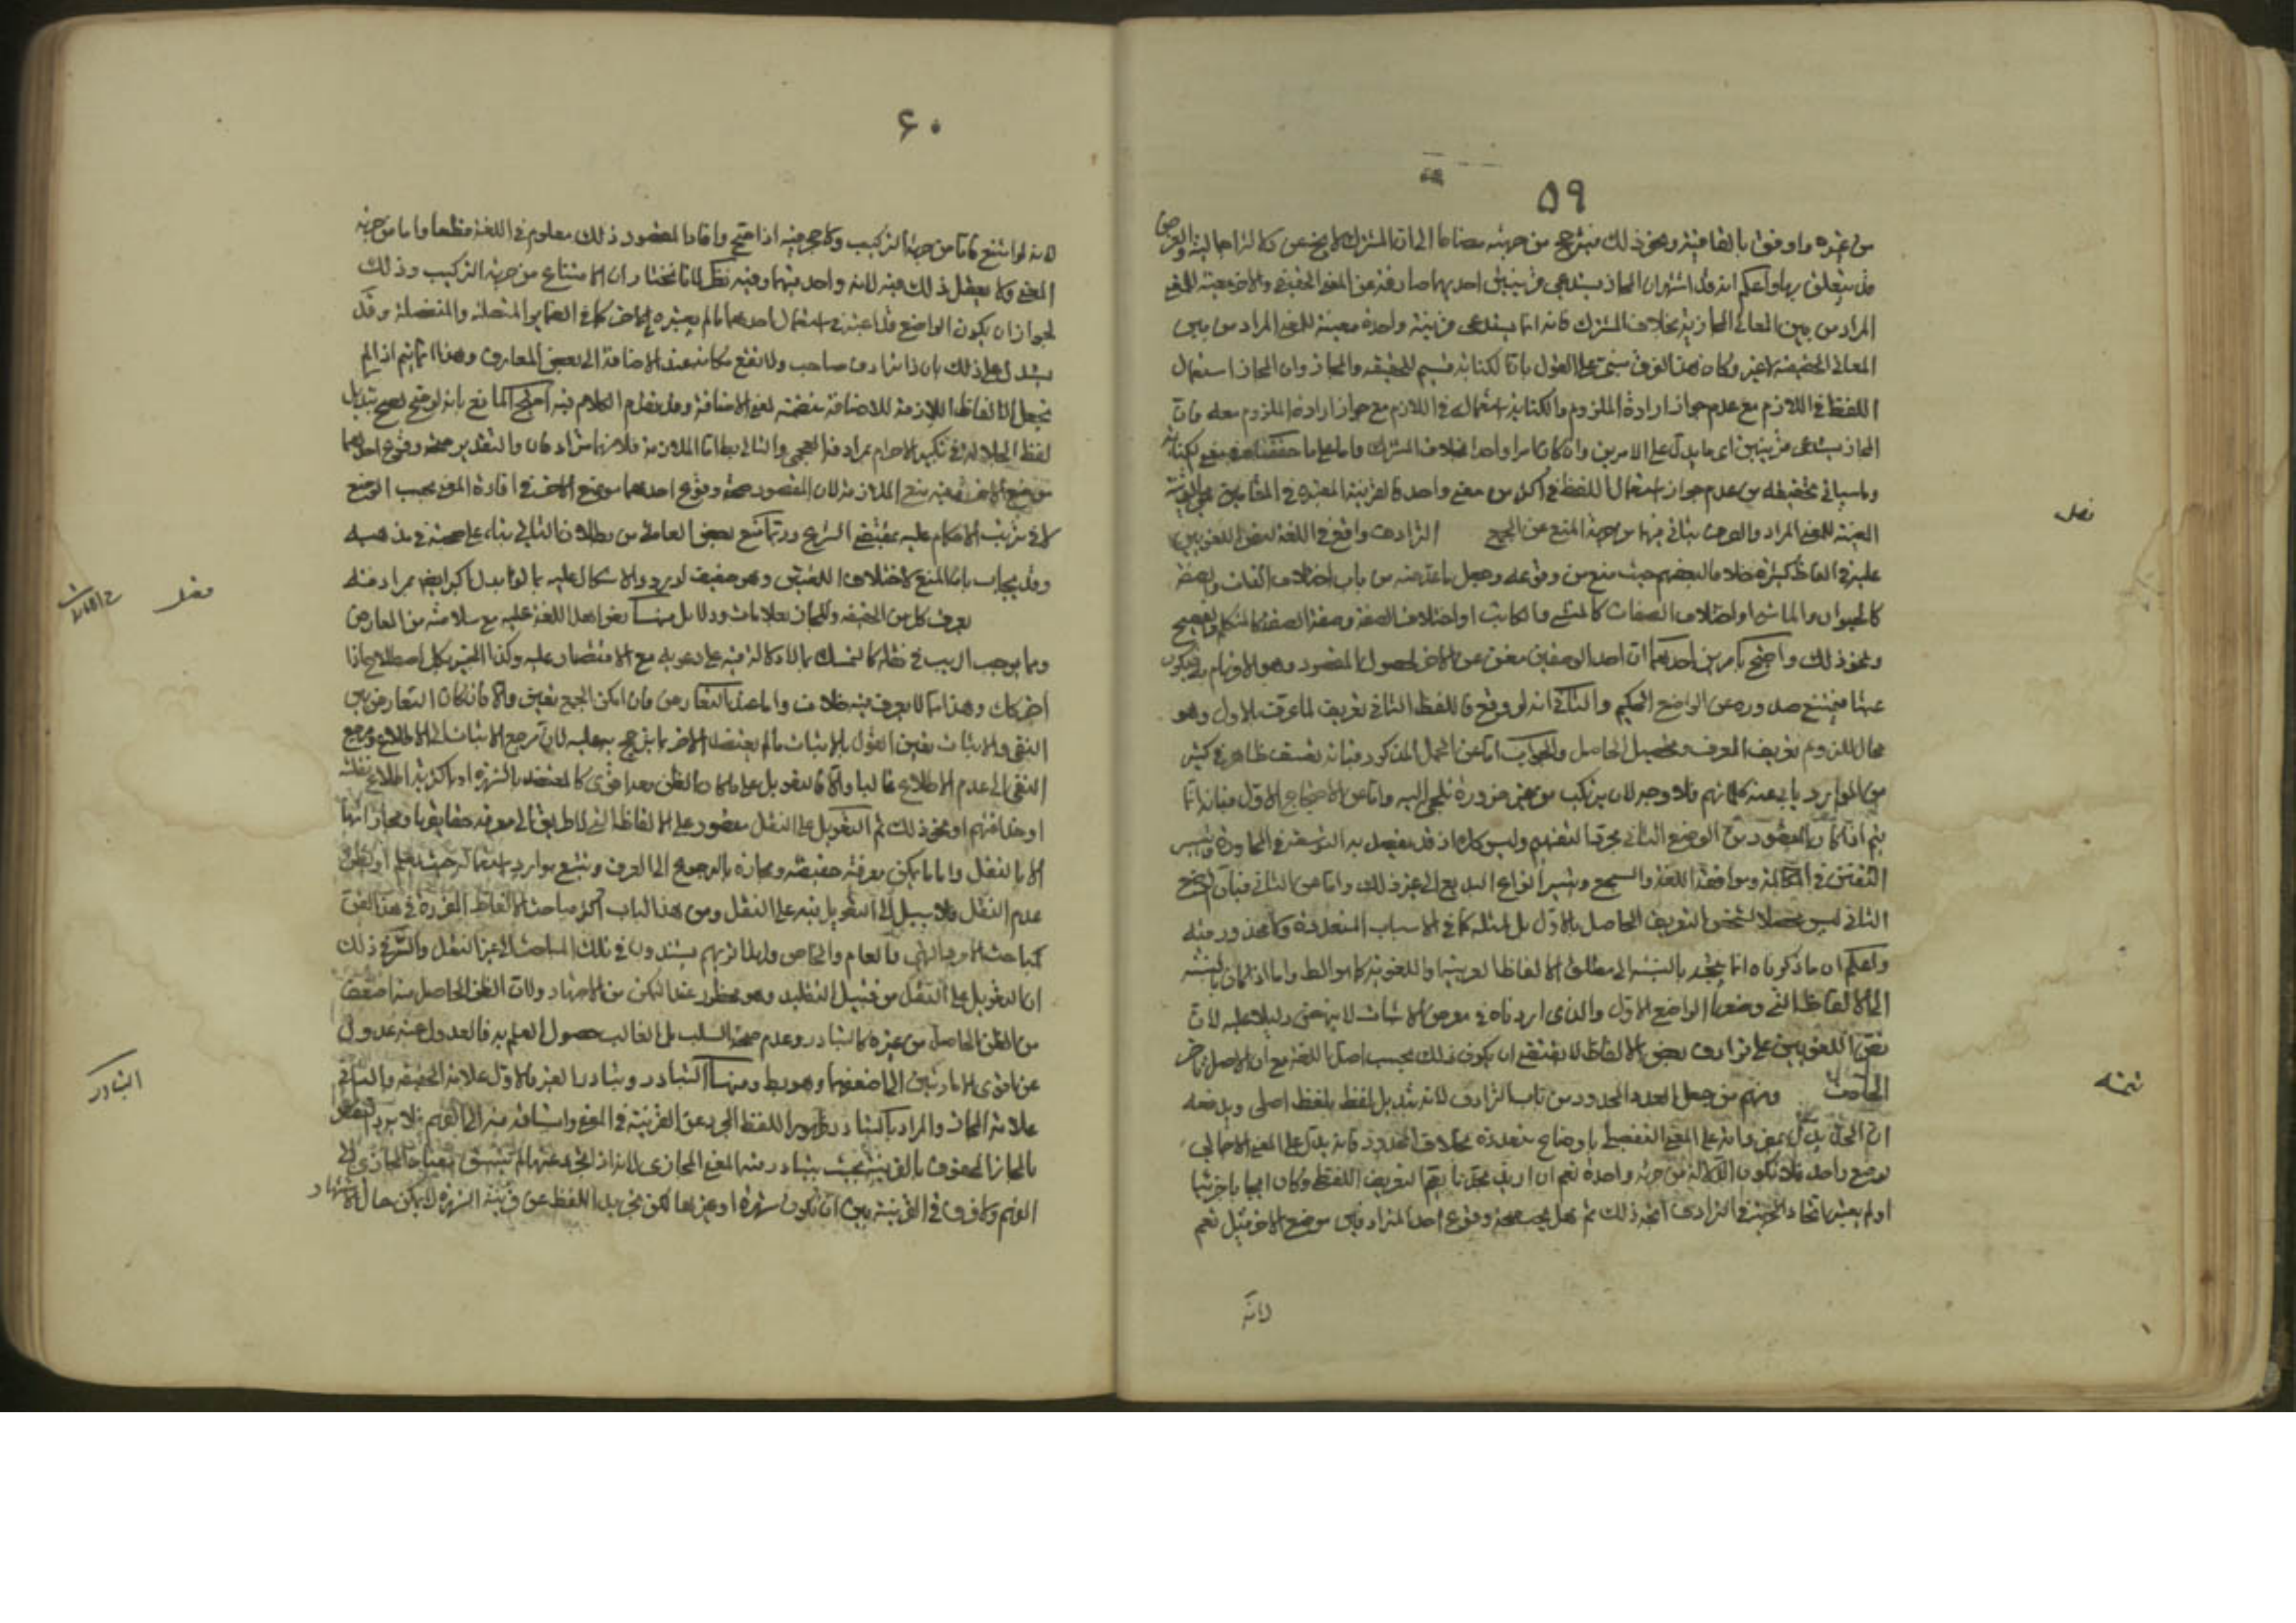 ۵۹
من غيره واوفق بالقافية ونحو ذلك فيترجح من جهته مضافا الى ان المشترك لا يخ عن دلالة
قد يتعلق بها واعلم انه قد اشتهر ان المجاز يستدعي قرينتين احديهما صارفة عن المعنى الحقيقي والاخرى معينة للمعنى
المراد من بين المعاني المجازية بخلاف المشترك فانه انما يستدعي قرينة واحدة معينة للمعنى المراد من بين
المعاني الحقيقية لا غير وكان هذا الفرق مبني على القول بان الكناية قسيم للحقيقة والمجاز وان المجاز استعمال
اللفظ في اللازم مع عدم جواز ارادة الملزوم والكناية استعماله في اللازم مع جواز ارادة الملزوم معه فان
المجاز يستدعي قرينتين اي ما يدل على الامرين وان كان امرا واحدا بخلاف المشترك واما على ما حققناه في معنى الكناية
وما سياتي تحقيقه من عدم جواز استعمال اللفظ في اكثر من معنى واحد فالقرينة المعتبرة في المقامين هي القرينة
المعينة للمعنى المراد والفرق ياتي فيها من جهة المنع عن الجمع الترادف واقع في اللغة لنص اللغويين
عليه في الفاظ كثيرة خلافا لبعضهم حيث منع من وقوعه وجعل ما ظن منه من باب اختلاف الذات والصفة
كالحيوان والماشي او اختلاف الصفات كالمنشي والكاتب او اختلاف الصفة وصفة الصفة كالمتكلم والفصيح
ونحو ذلك واحتج بامرين احدهما ان احد الوضعين مغن عن الاخر لحصول المقصود وهو الافهام به فيكون
عبثا فيمتنع صدوره عن الواضع الحكيم والثاني انه لو وقع فاللفظ الثاني تعريف لما عرف بالاول وهو
محال للزوم تعريف المعرف وتحصيل الحاصل والجواب اما عن الحمل المذكور فبانه تعسف ظاهر في كثير
من الموارد يابى عنه كلماتهم فلا وجه لان يرتكب من غير ضرورة تلجئ اليه واما عن الاحتجاج الاول فبانه انما
يتم اذا كان المقصود من الوضع الثاني مجرد التفهيم وليس كك اذ قد يقصد به التوسعة في المحاورة وتيسر
التفنن في المكالمة وموافقة اللغة والسجع وتيسر انواع البديع الى غير ذلك واما عن الثاني فبان الوضع
الثاني ليس محصلا لشخص التعريف الحاصل بالاول بل لمثله كما في الاسباب المتعددة ولا محذور فيه
واعلم ان ما ذكرناه انما يتجه بالنسبة الى مطلق الالفاظ العربية او اللغوية كما هو الظ واما اذا كان بالنسبة
الى الالفاظ التي وضعها الواضع الاول والذي اوردناه في معرض الاثبات لا ينهض دليلا عليه لان
نص اللغويين على ترادف بعض الالفاظ لا يقتضي ان يكون ذلك بحسب اصل اللغة مع ان الاصل تاخر
الحادث ومنهم من جعل الحد والمحدود من باب الترادف لانه تبديل لفظ بلفظ اجلى ويدفعه
ان الحد يدل بمفرداته على المعنى التفصيلي باوضاع متعددة بخلاف المحدود فانه يدل على المعنى الاجمالي
بوضع واحد فلا تكون الدلالة من جهة واحدة نعم ان اريد بحدنا ما يعم التعريف اللفظي وكان ايجابا جزئيا
او لم يعتبر اتحاد الحيثية في الترادف اتجه ذلك ثم هل يجب صحة وقوع احد المترادفين موضع الاخر قيل نعم
لانه
فصل
تتمة
۶۰
لانه لو امتنع لكان من جهة التركيب ولا حجر فيه اذا صح وافاد المقصود وذلك معلوم في اللغة قطعا واما من جهة
المعنى ولا يعقل ذلك فيه لانه واحد فيهما وفيه نظر لانا نختار ان الامتناع من جهة التركيب وذلك
لجواز ان يكون الواضع قد اعتبر في استعمال احدهما ما لم يعتبره في الاخر كما في الضماير المتصلة والمنفصلة وقد
يستدل على ذلك بان ذا ترادف صاحب ولا تقع مكانه عند الاضافة الى بعض المعارف وهذا انما يتم اذا لم
نجعل الالفاظ اللازمة للاضافة متضمنة لمعنى الاضافة وقد تقدم الكلام فيه احتج المانع بانه لو صح لصح تبديل
لفظ الجلالة في تكبير الاحرام بمرادفه العجمي والتالي بط اما الملازمة فلانهما مترادفان والتقدير صحة وقوع احدهما
موضع الاخر وفيه منع الملازمة لان المقصود صحة وقوع احدهما موضع الاخر في افادة المعنى بحسب الوضع
لا في ترتب الاحكام عليه بمقتضى الشرع وربما منع بعض العامة من بطلان التالي بناء على صحته في مذهبه
وقد يجاب بان المنع لاختلاف اللغتين وهو ضعيف لورود الاشكال عليه بما لو ابدل اكبر ايضا بمرادفه
يعرف كل من الحقيقة والمجاز بعلامات ودلائل منها نص اهل اللغة عليه مع سلامته من المعارض
ومما يوجب الريب في نقله كالتمسك بما لا دلالة فيه على دعويه مع الاقتصار عليه وكذا الخبير بكل اصطلاح اذا
اخبر كك وهذا مما لا يعرف فيه خلاف واما عند التعارض فان امكن الجمع تعين والا فان كان التعارض بين
النفي والاثبات تعين القول بالاثبات ما لم يعتضد الاخر بما يترجح به عليه لان مرجع الاثبات الى الاطلاع ومرجع
النفي الى عدم الاطلاع غالبا والا فالتعويل على ما كان الظن معه اقوى كالمعتضد بالشهرة او باكثرية اطلاع نقلته
او حذاقتهم او نحو ذلك ثم التعويل على النقل مقصور على الالفاظ التي لا طريق الى معرفة حقايقها ومجازاتها
الا بالنقل واما ما يمكن معرفة حقيقته ومجازه بالرجوع الى العرف وتتبع موارد استعماله حيث يعلم او يظن
عدم النقل فلا سبيل الى التعويل فيه على النقل ومن هذا الباب اكثر مباحث الالفاظ المقررة في هذا الفن
كمباحث الامر والنهي والعام والخاص ولهذا تريهم يستندون في تلك المباحث الى غير النقل والسر في ذلك
ان التعويل على النقل من قبيل التقليد وهو محظور عند التمكن من الاجتهاد ولان الظن الحاصل منه اضعف
من الظن الحاصل من غيره كالتبادر وعدم صحة السلب بل الغالب حصول العلم به فالعدول عنه عدول
عن اقوى الامارتين الى اضعفهما وهو بط ومنها التبادر وتبادر الغير فالاول علامة الحقيقة والثاني
علامة المجاز والمراد بالتبادر ظهور اللفظ المجرد عن القرينة في المعنى وانسباقه منه الى الفهم فلا يرد النقض
بالمجاز المحفوف بالقرينة حيث يتبادر منه المعنى المجازي لانه اذا جرد عنها لم يتسبق معناه المجازي الى
الفهم ولا فرق في القرينة بين ان تكون شهرة او غيرها لكن تجريد اللفظ عن قرينة الشهرة لا يمكن حال الاشتهار
فصل
التبادر